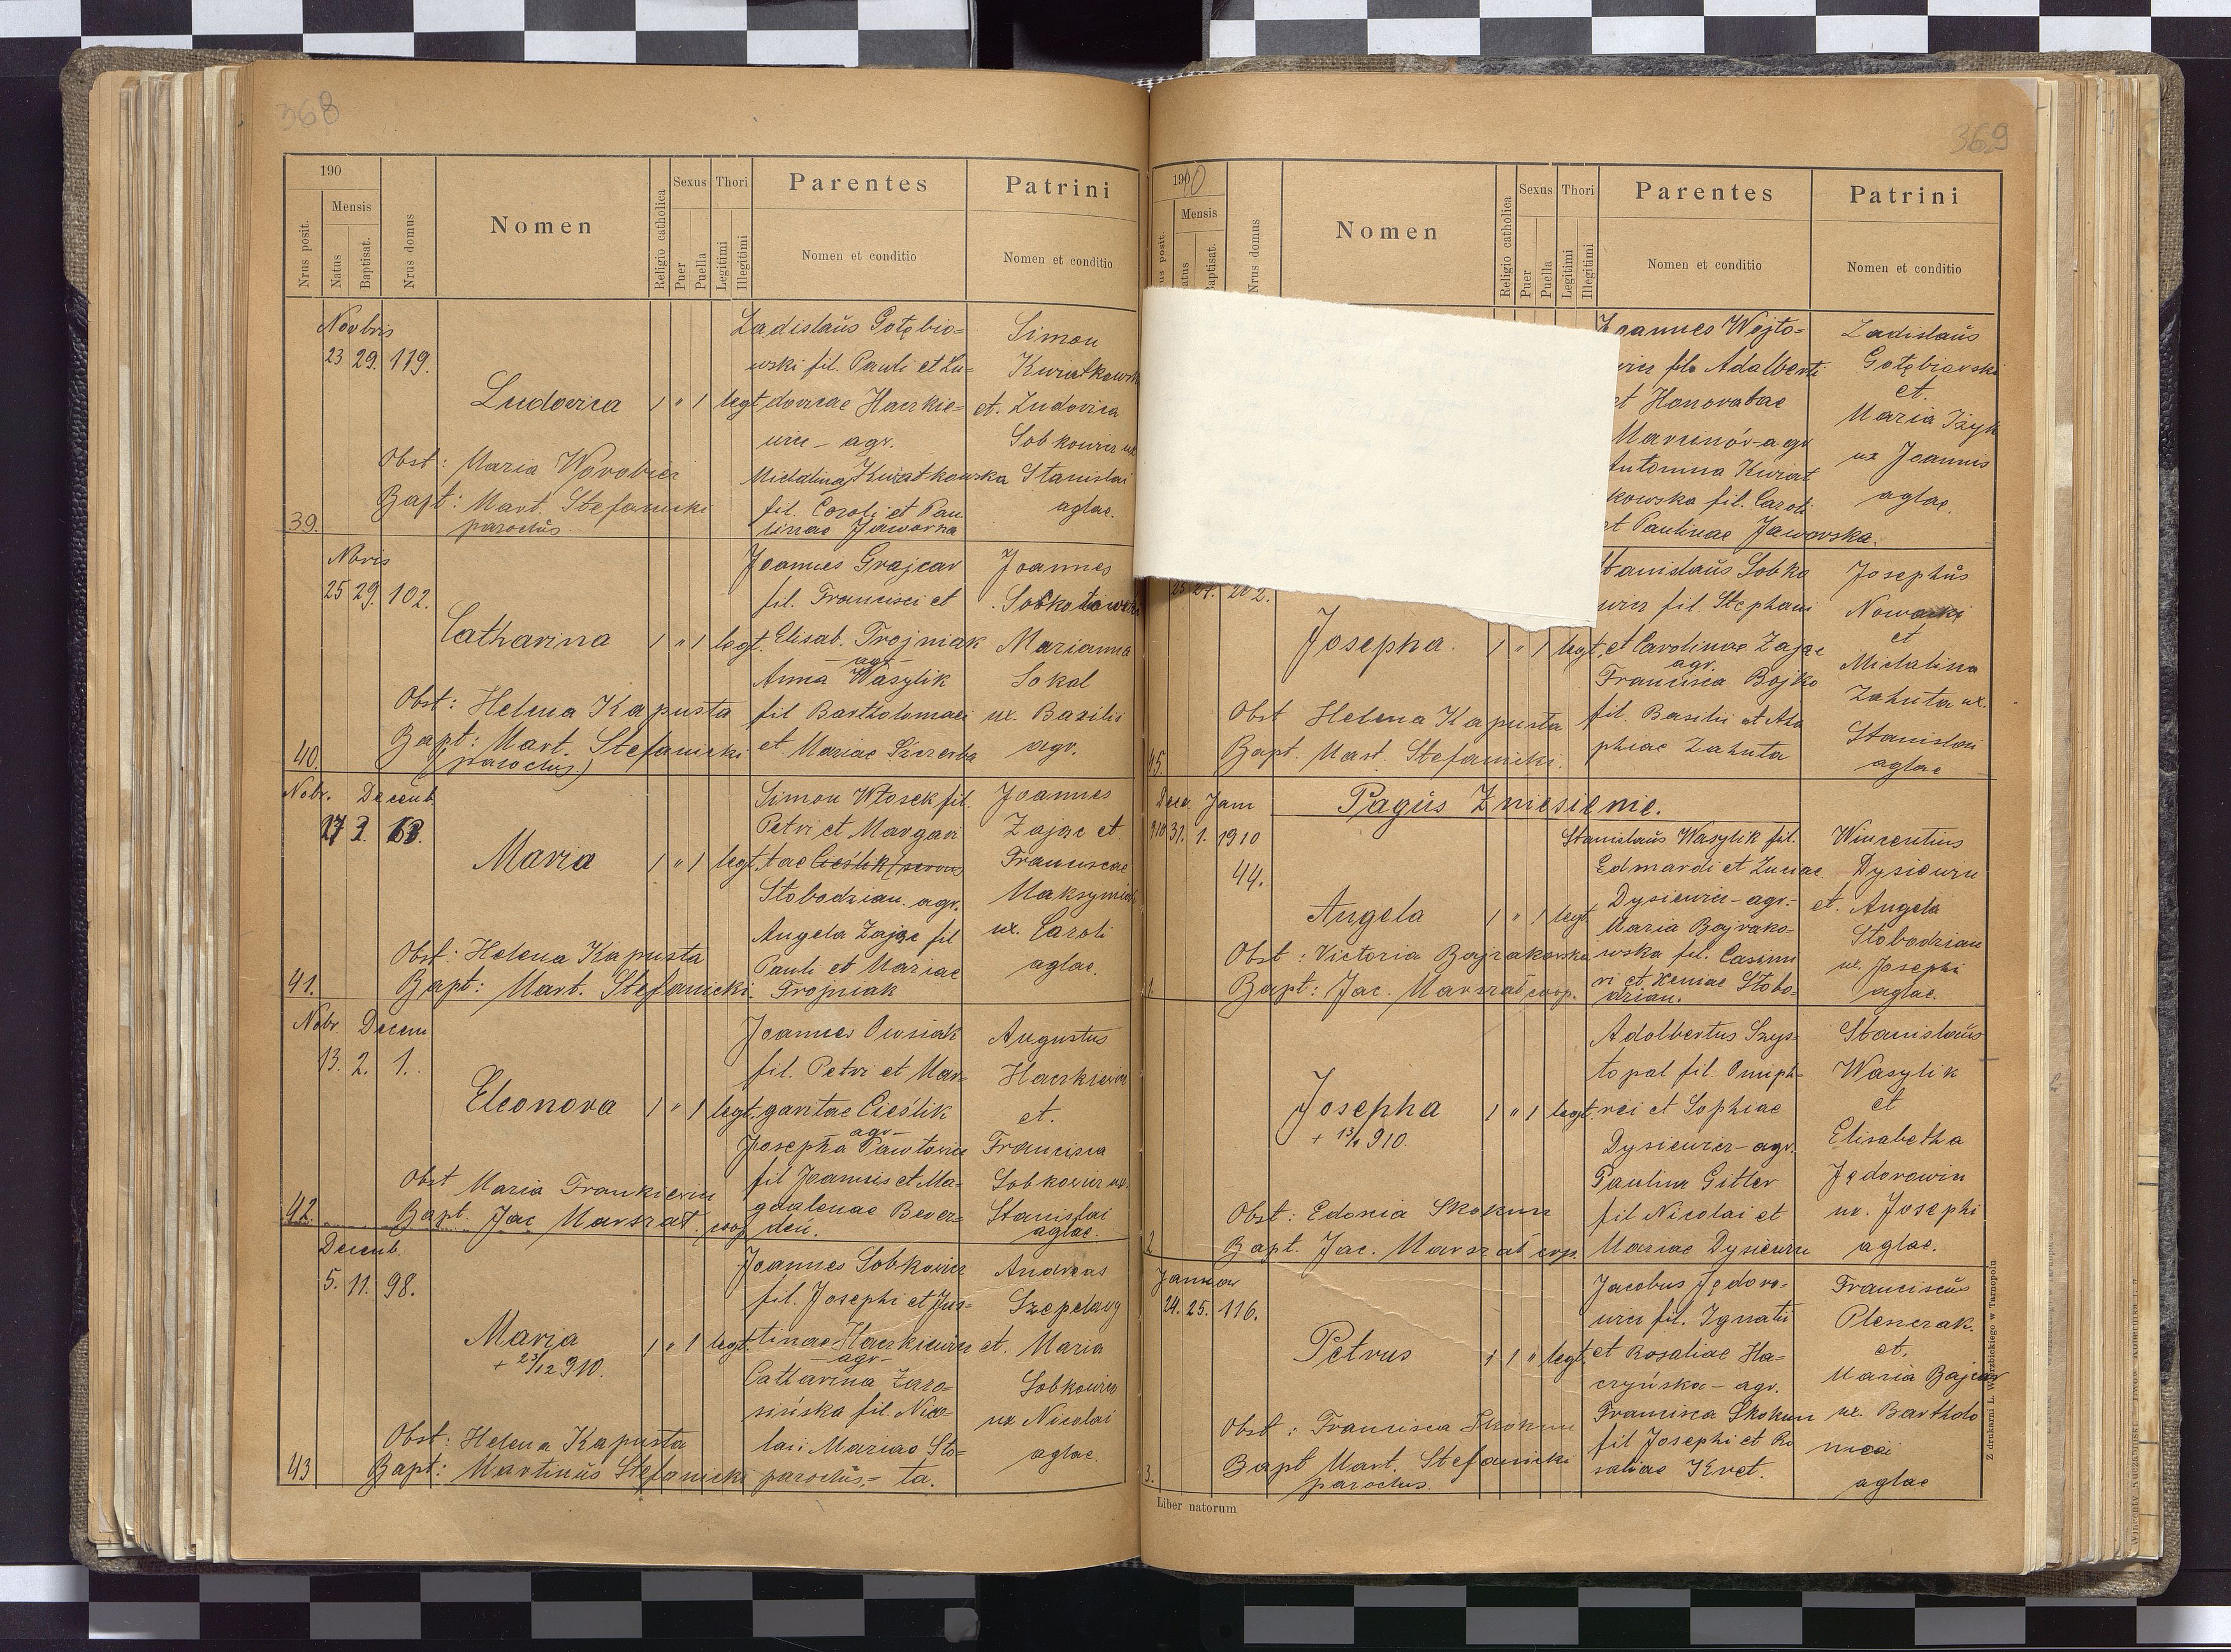 368
190
Mensis
Nrus posit.
Natus
Baptisat.
Nrus domus
Nomen
Religio catholica
Sexus
Puer
Puella
Thori
Legitimi
Illegitimi
Parentes
Nomen et conditio
Patrini
Nomen et conditio
Novbris
23 29. 119.
Ludovica 1 " 1 legt
Obst: Maria
Bapt: Mart. Stefanicki
parochus
39.
Ladislaus Gołębio=
wski fil. Pauli et Lu=
dovicae Hackie=
wicz - agr.
Michalina Kwiatkowska
fil. Caroli et Pau
linae
Simon
Kwiatkowski
et. Ludovica
Sobkowicz ux.
Stanislai
aglae.
Nbris
25 29. 102.
Catharina 1 " 1 legt.
Obst: Helena Kapusta
Bapt: Mart. Stefanicki
(parochus)
40.
Joannes Grajcar
fil. Francisci et
Elisab. Trojniak
- agr -
Anna Wasylik
fil Bartholomaei
et. Mariae Szczerba
Joannes
Marianna
Sokal
ux. Basilii
agr.
Nobr. Decemb
27 2. 63.
Maria 1 " 1 legt.
Obst: Helena Kapusta
Bapt: Mart. Stefanicki
41.
Simon Włosek fil.
Petri et Margari
tae Cieślik
Słobodzian. agr.
Angela Zając fil
Pauli et Mariae
Trojniak
Joannes
Zając et
Franciscae
Maksymiak
ux. Caroli
aglae.
Nobr. Decem
13. 2. 1.
Eleonora 1 " 1 legt.
Obst Maria Frankiewicz
Bapt. Jac Marszał. coop
42.
Joannes Owsiak
fil. Petri et Mar=
garitae Cieślik
agr-
Josepha Pawłowicz
fil Joannis et Ma=
gdalenae Bever=
deń.
Augustus
Hackiewicz
et.
Francisca
Sobkowicz ux.
Stanislai
aglae.
Decemb.
5. 11. 98.
Maria 1 " 1 legt.
+ 23/12 910.
Obst: Helena Kapusta
Bapt: Martinus Stefanicki parochus,
43
Joannes Sobkowicz
fil. Josephi et Jus=
tinae Hackiewicz
- agr-
Catharina Zaro=
sińska fil. Nico=
lai Mariae Sto=
ta.
Andreas
et. Maria
Sobkowicz
ux Nicolai
aglae.
369
1900
Mensis
Baptisat.
Nrus domus
Nomen
Religio catholica
Sexus
Puer
Puella
Thori
Legitimi
Illegitimi
Parentes
Nomen et conditio
Patrini
Nomen et conditio
Joannes Wojto=
wicz fil. Adalberti
et Honoratae
Marcinów-agr
Antonina Kwiat
kowska fil. Caroli
et Paulinae Jaworska.
Ladislaus
Gołębiowski
et.
Maria Iżyk
ux Joannis
aglae.
Josepha. 1 " 1 legt.
Obst Helena Kapusta
Bapt. Mart. Stefanicki.
45.
Stanislaus Sobko
wicz fil. Stephani
et Carolinae Zając
agr.
Francisca Bojko
fil. Basilii et
phiae Zahuta
Josephus
Nowacki
et
Michalina
Zahuta ux.
Stanislai
aglae
Pagus Zniesienie.
Dece. Jan
910 31. 1. 1910
44.
Angela 1 " 1 legt.
Obst: Victoria Bajrakowska
Bapt: Jac. Marszał coop.
1
Stanislaus Wasylik fil.
Edmardi et
Dysiewicz - agr.-
Maria Bajrako=
wska fil. Casimi
ri et Xeniae Słobo=
dzian.
Wincentius
Dysiewicz
et. Angela
Słobodzian
ux. Josephi
aglae.
Josepha 1 " 1 legt.
+ 13/4 910.
Obst: Skokun
Bapt. Jac. Marszał coop.
2
Adolbertus Szys=
topal fil. Onuph=
rii et Sophiae
Dysiewicz - agr.
Paulina Gitler
fil Nicolai et
Mariae Dysiewicz
Stanislaus
Wasylik
et
Elisabetha
Jędorowicz
ux. Josephi
aglae.
Januar
24. 25. 116.
Petrus 1 1 " legt.
Obst: Francisca Skokun
Bapt Mart. Stefanicki
parochus.
3.
Jacobus Jędoro=
wicz fil. Ignatii
et Rosaliae Ha=
czyńska - agr.
Francisca Skokun
fil Josephi et Ro
saliae Kret.
Franciscus
Plenczak.
et.
Maria
ux. Bartholo
maei
aglae
Liber natorum
Z drukarni L. Wierzbickiego w Tarnopolu